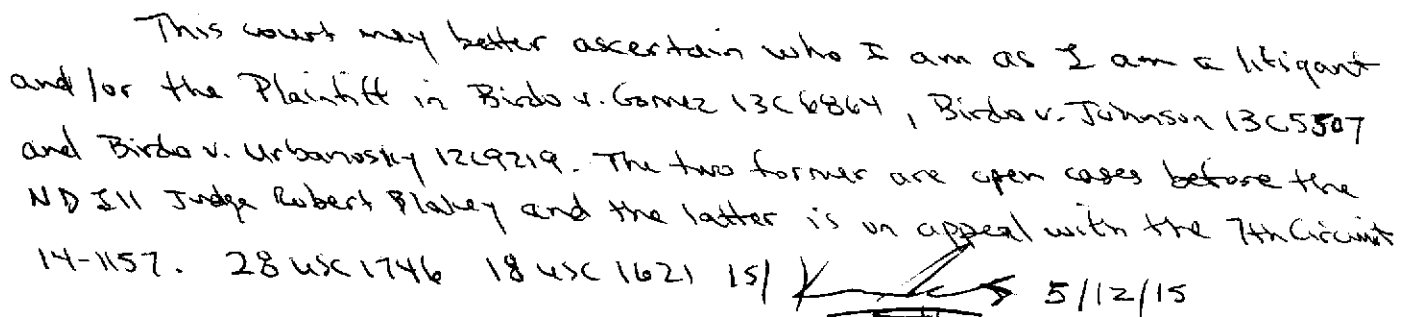 This court may better ascertain who I am as I am a litigant
and/or the Plaintiff in Birdo v. Gomez 13C6864, Birdo v. Johnson 13C5507
and Birdo v. Urbanosky 12C9219. The two former are open cases before the
ND Ill Judge Robert Blakey and the latter is on appeal with the 7th Circuit
14-1157. 28 USC 1746 18 USC 1621 /s/ 5/12/15